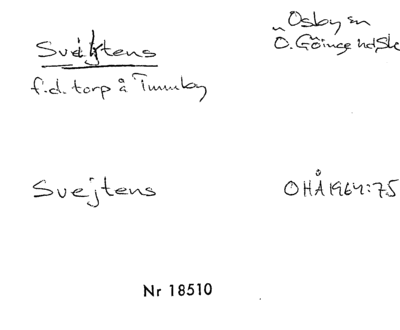 Osby sn
Svejktens
Ö. Göinge hd Sk
f.d. torp å
Svejtens
OHÅ 1964:75
Nr 18510